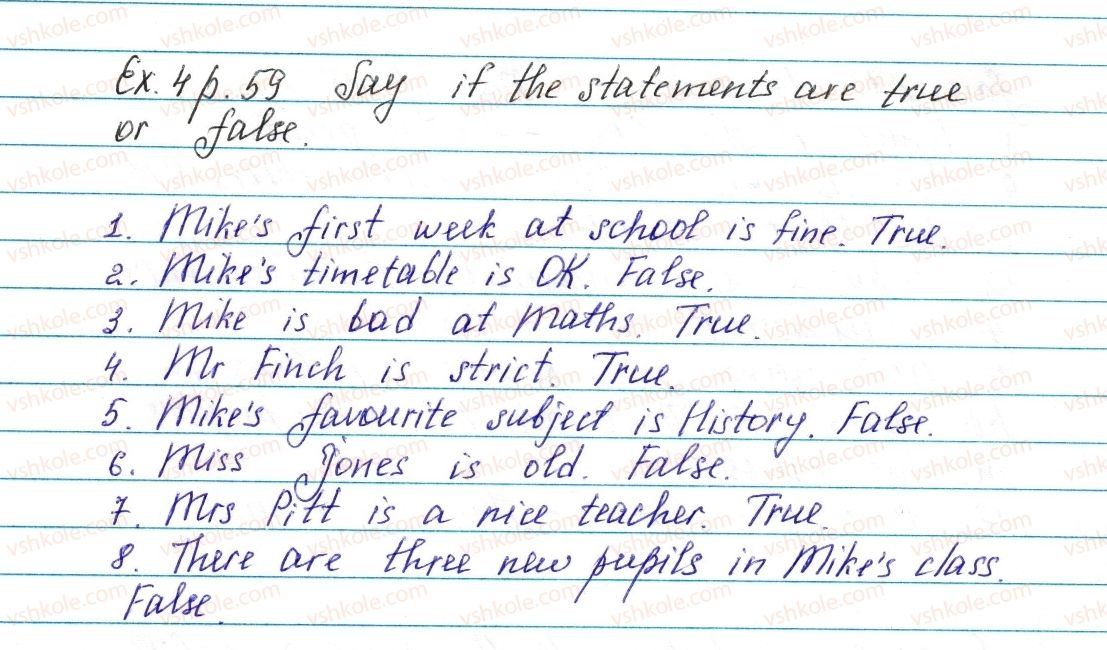 Ex. 4 p. 59 Say if the statements are true
or false.
1. Mike's first week at school is fine. True.
2. Mike's timetable is OK. False.
3. Mike is bad at Maths. True.
4. Mr Finch is strict. True.
5. Mike's favourite subject is History. False.
6. Miss Jones is old. False.
7. Mrs Pitt is a nice teacher. True.
8. There are three new pupils in Mike's class.
False.
vshkole.com